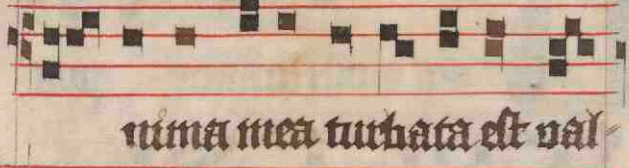 nima mea turbata est val-